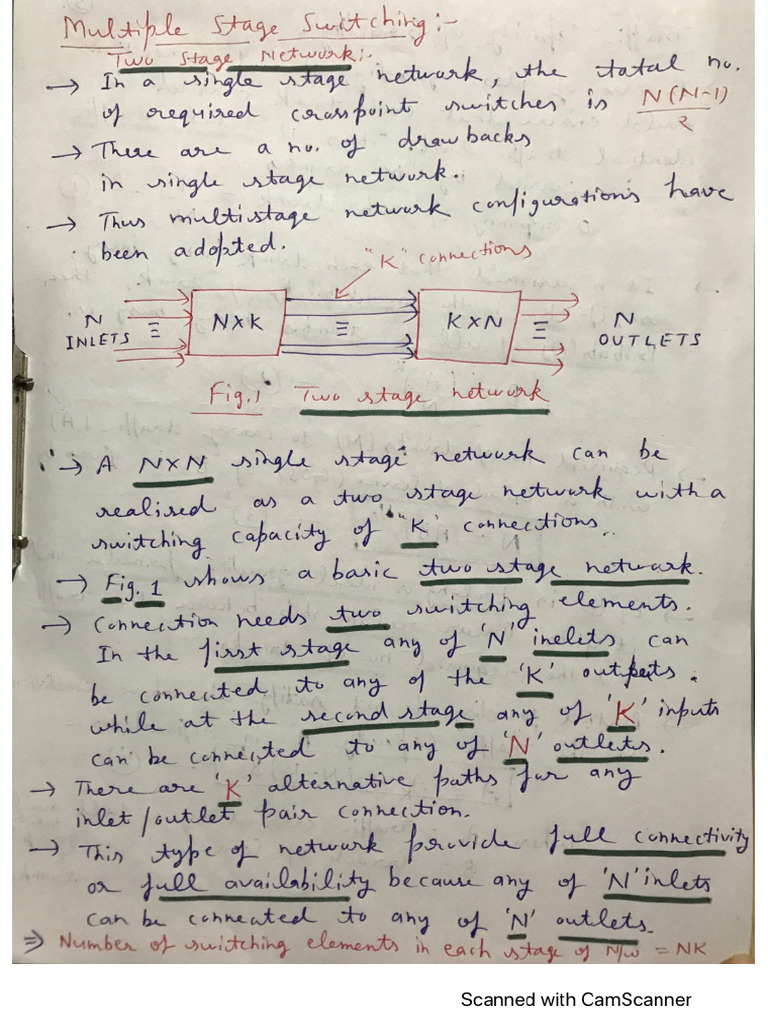 Multiple Stage Switching:-
Two Stage Network:-
→ In a single stage network, the total no.
of required crosspoint switches is N(N-1)/2
→ There are a no. of drawbacks
in single stage network.
→ Thus multistage network configurations have
been adopted.
"K" connections
N INLETS
NXK
KXN
N OUTLETS
Fig.1 Two stage network
→ A NXN single stage network can be
realised as a two stage network with a
switching capacity of "K" connections.
→ Fig. 1 shows a basic two stage network.
→ Connection needs two switching elements.
In the first stage any of 'N' inelets can
be connected to any of the 'K' outputs.
while at the second stage any of 'K' inputs
can be connected to any of 'N' outlets.
→ There are 'K' alternative paths for any
inlet/outlet pair connection.
→ This type of network provide full connectivity
or full availability because any of 'N' inlets
can be connected to any of 'N' outlets.
⇒ Number of switching elements in each stage of N/w = NK
Scanned with CamScanner